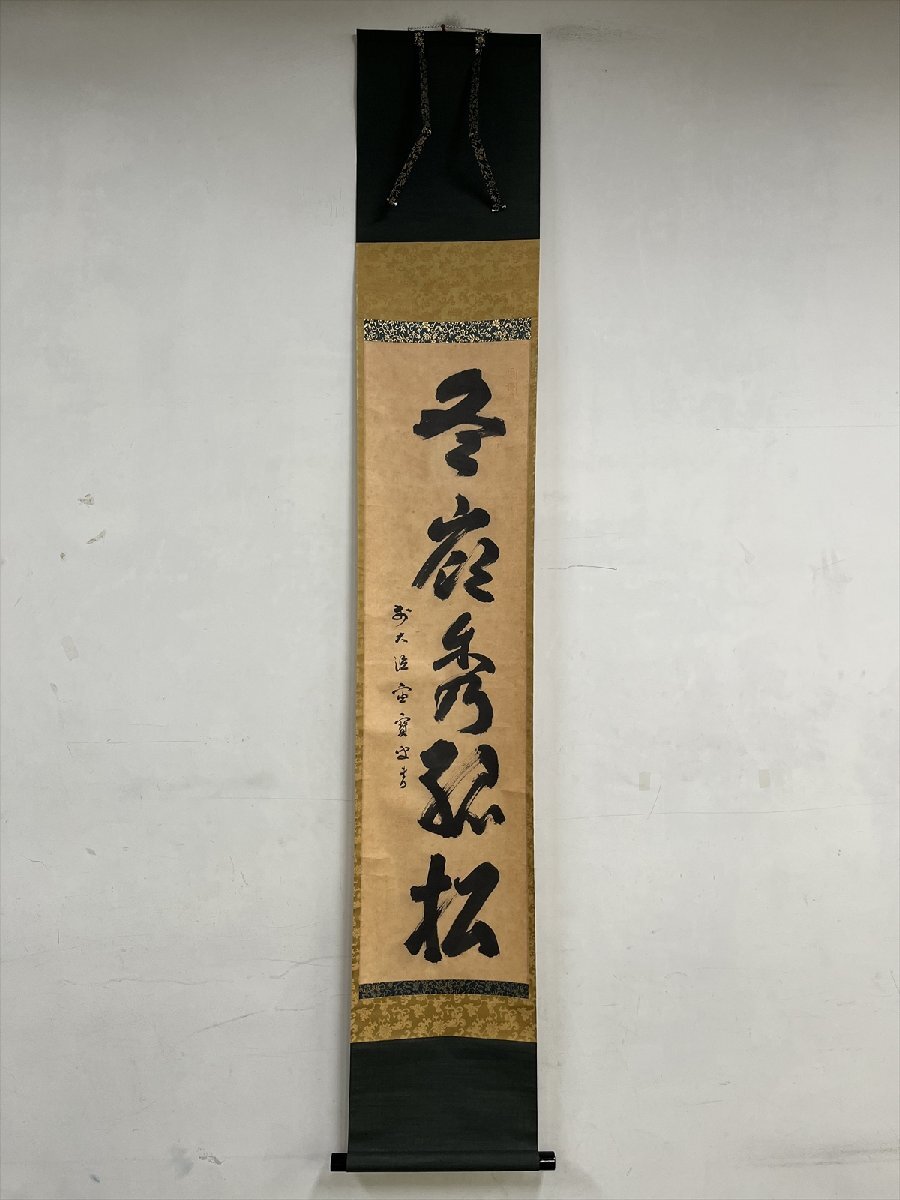 冬嶺秀孤松
前大徳宙寳書